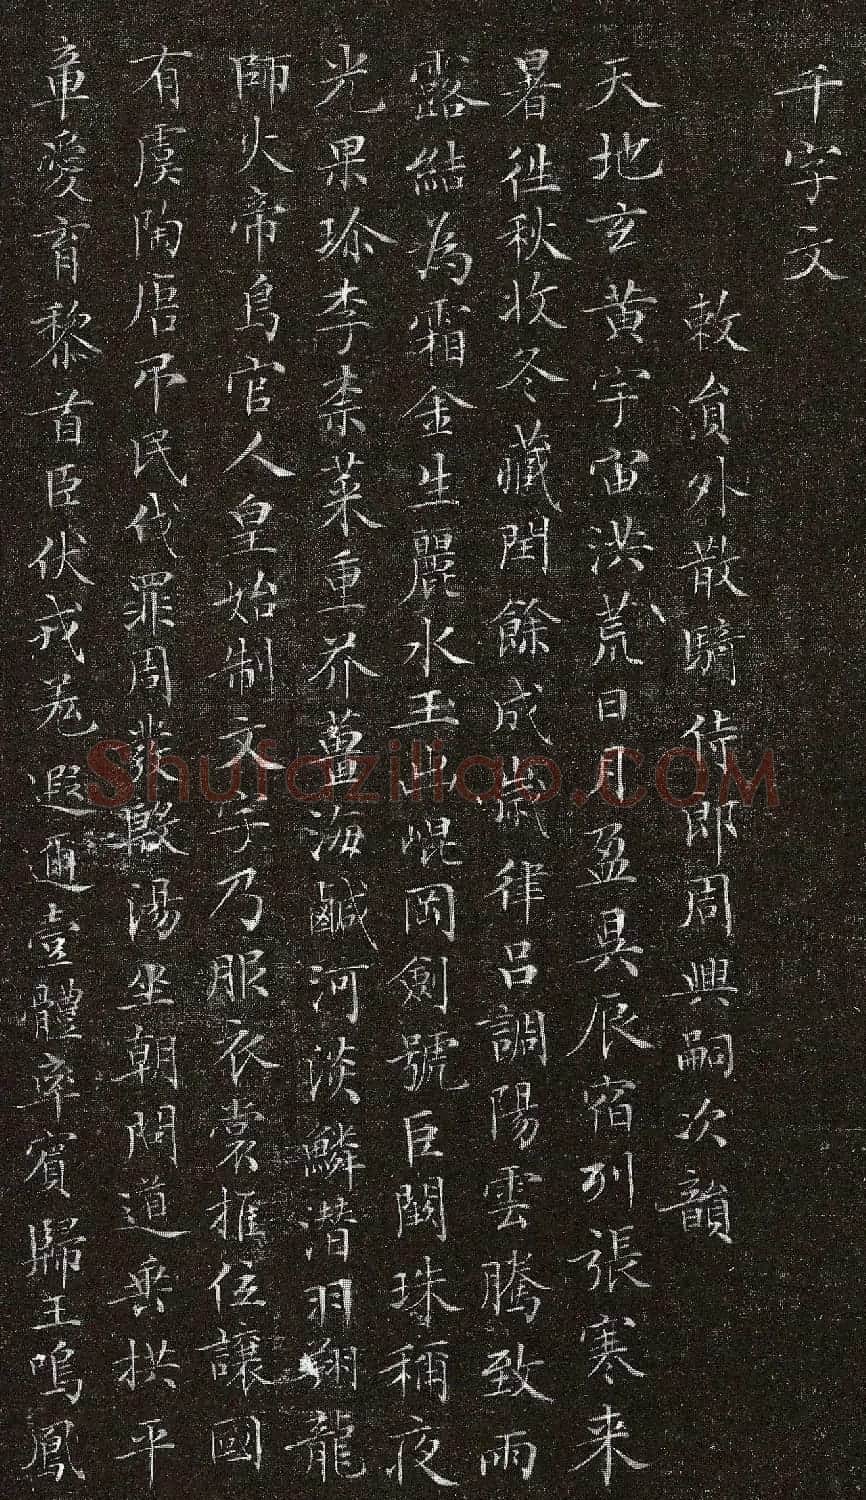 千字文
敕員外散騎侍郎周興嗣次韻
天地玄黃宇宙洪荒日月盈昃辰宿列張寒来
暑往秋收冬藏閏餘成歲律呂調陽雲騰致雨
露結為霜金生麗水玉出崐岡劍號巨闕珠稱夜
光果珎李柰菜重芥薑海鹹河淡鱗潛羽翔龍
師火帝鳥官人皇始制文字乃服衣裳推位讓國
有虞陶唐吊民伐罪周發殷湯坐朝問道垂拱平
章愛育黎首臣伏戎羌遐邇壹體率賓歸王鳴鳳
Shufaziliao.COM